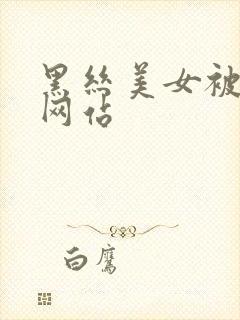 黑丝美女被
网站
白鹰